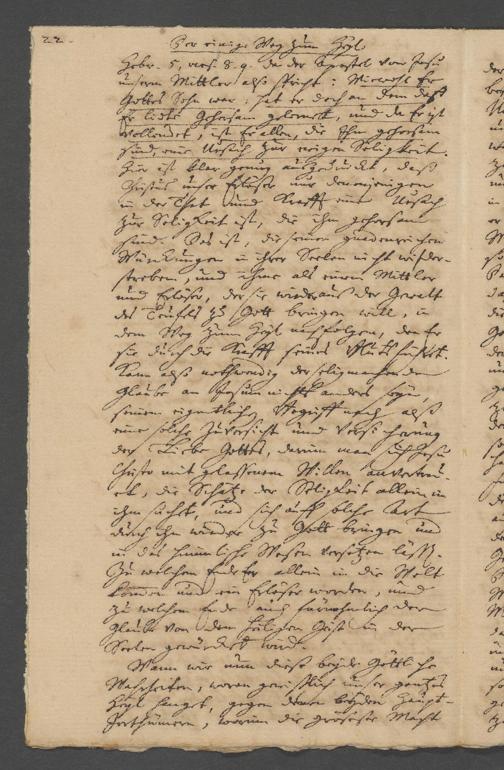 22.
Der einige Weg zum Heyl
Hebr. 5, vers. 8. 9. da der Apostel von Jesu
unserm Mittler also spricht: Wiewohl Er
Gottes Sohn war, hat er doch an dem das
Er lidte Gehorsam gelernet, und da Er ist
vollendet, ist Er allen, die Ihm gehorsam
sind, eine Ursach zur ewigen Seligkeit.
Hier ist klar genug ausgedruckt, daß
Christus unser Erlöser nur denenjenigen
in der That und Krafft eine Ursach
zur Seligkeit ist, die ihm gehorsam
sind. Das ist, die seinen gnadenreichen
Würckungen in ihrer Seelen nicht wider-
streben, und ihme als einem Mittler
und Erlöser, der sie wieder aus der Gewalt
des Teufels zu Gott bringen will, in
dem Weg zum Heyl nachfolgen, den Er
sie durch die Krafft seines
Kann also nothwendig der seligmachende
Glaube an Jesum nichts anders seyn,
seinem eigentlichen Begriff nach, als
eine solche Zuversicht und Versicherung
der Liebe Gottes, darinn man sich Jesu
Christo mit gelassenem Willen anvertrau-
et, die Schätze der Seligkeit allein in
ihm suchet, und sich auf solche Art
durch ihn wieder zu Gott bringen und
in das himmlische Wesen versetzen läßt.
Zu welchem Ende Er allein in die Welt
kommen und ein Erlöser worden, und
zu welchem Ende auch fürnehmlich der
Glaube von dem Heiligen Geist in der
Seelen gewürcket wird.
Wann wir nun diese beyde Göttliche
Wahrheiten, woran gewißlich unser gantzes
Heyl hanget, gegen denen beyden Haupt-
Irrthümern, worinn die gröseste Macht